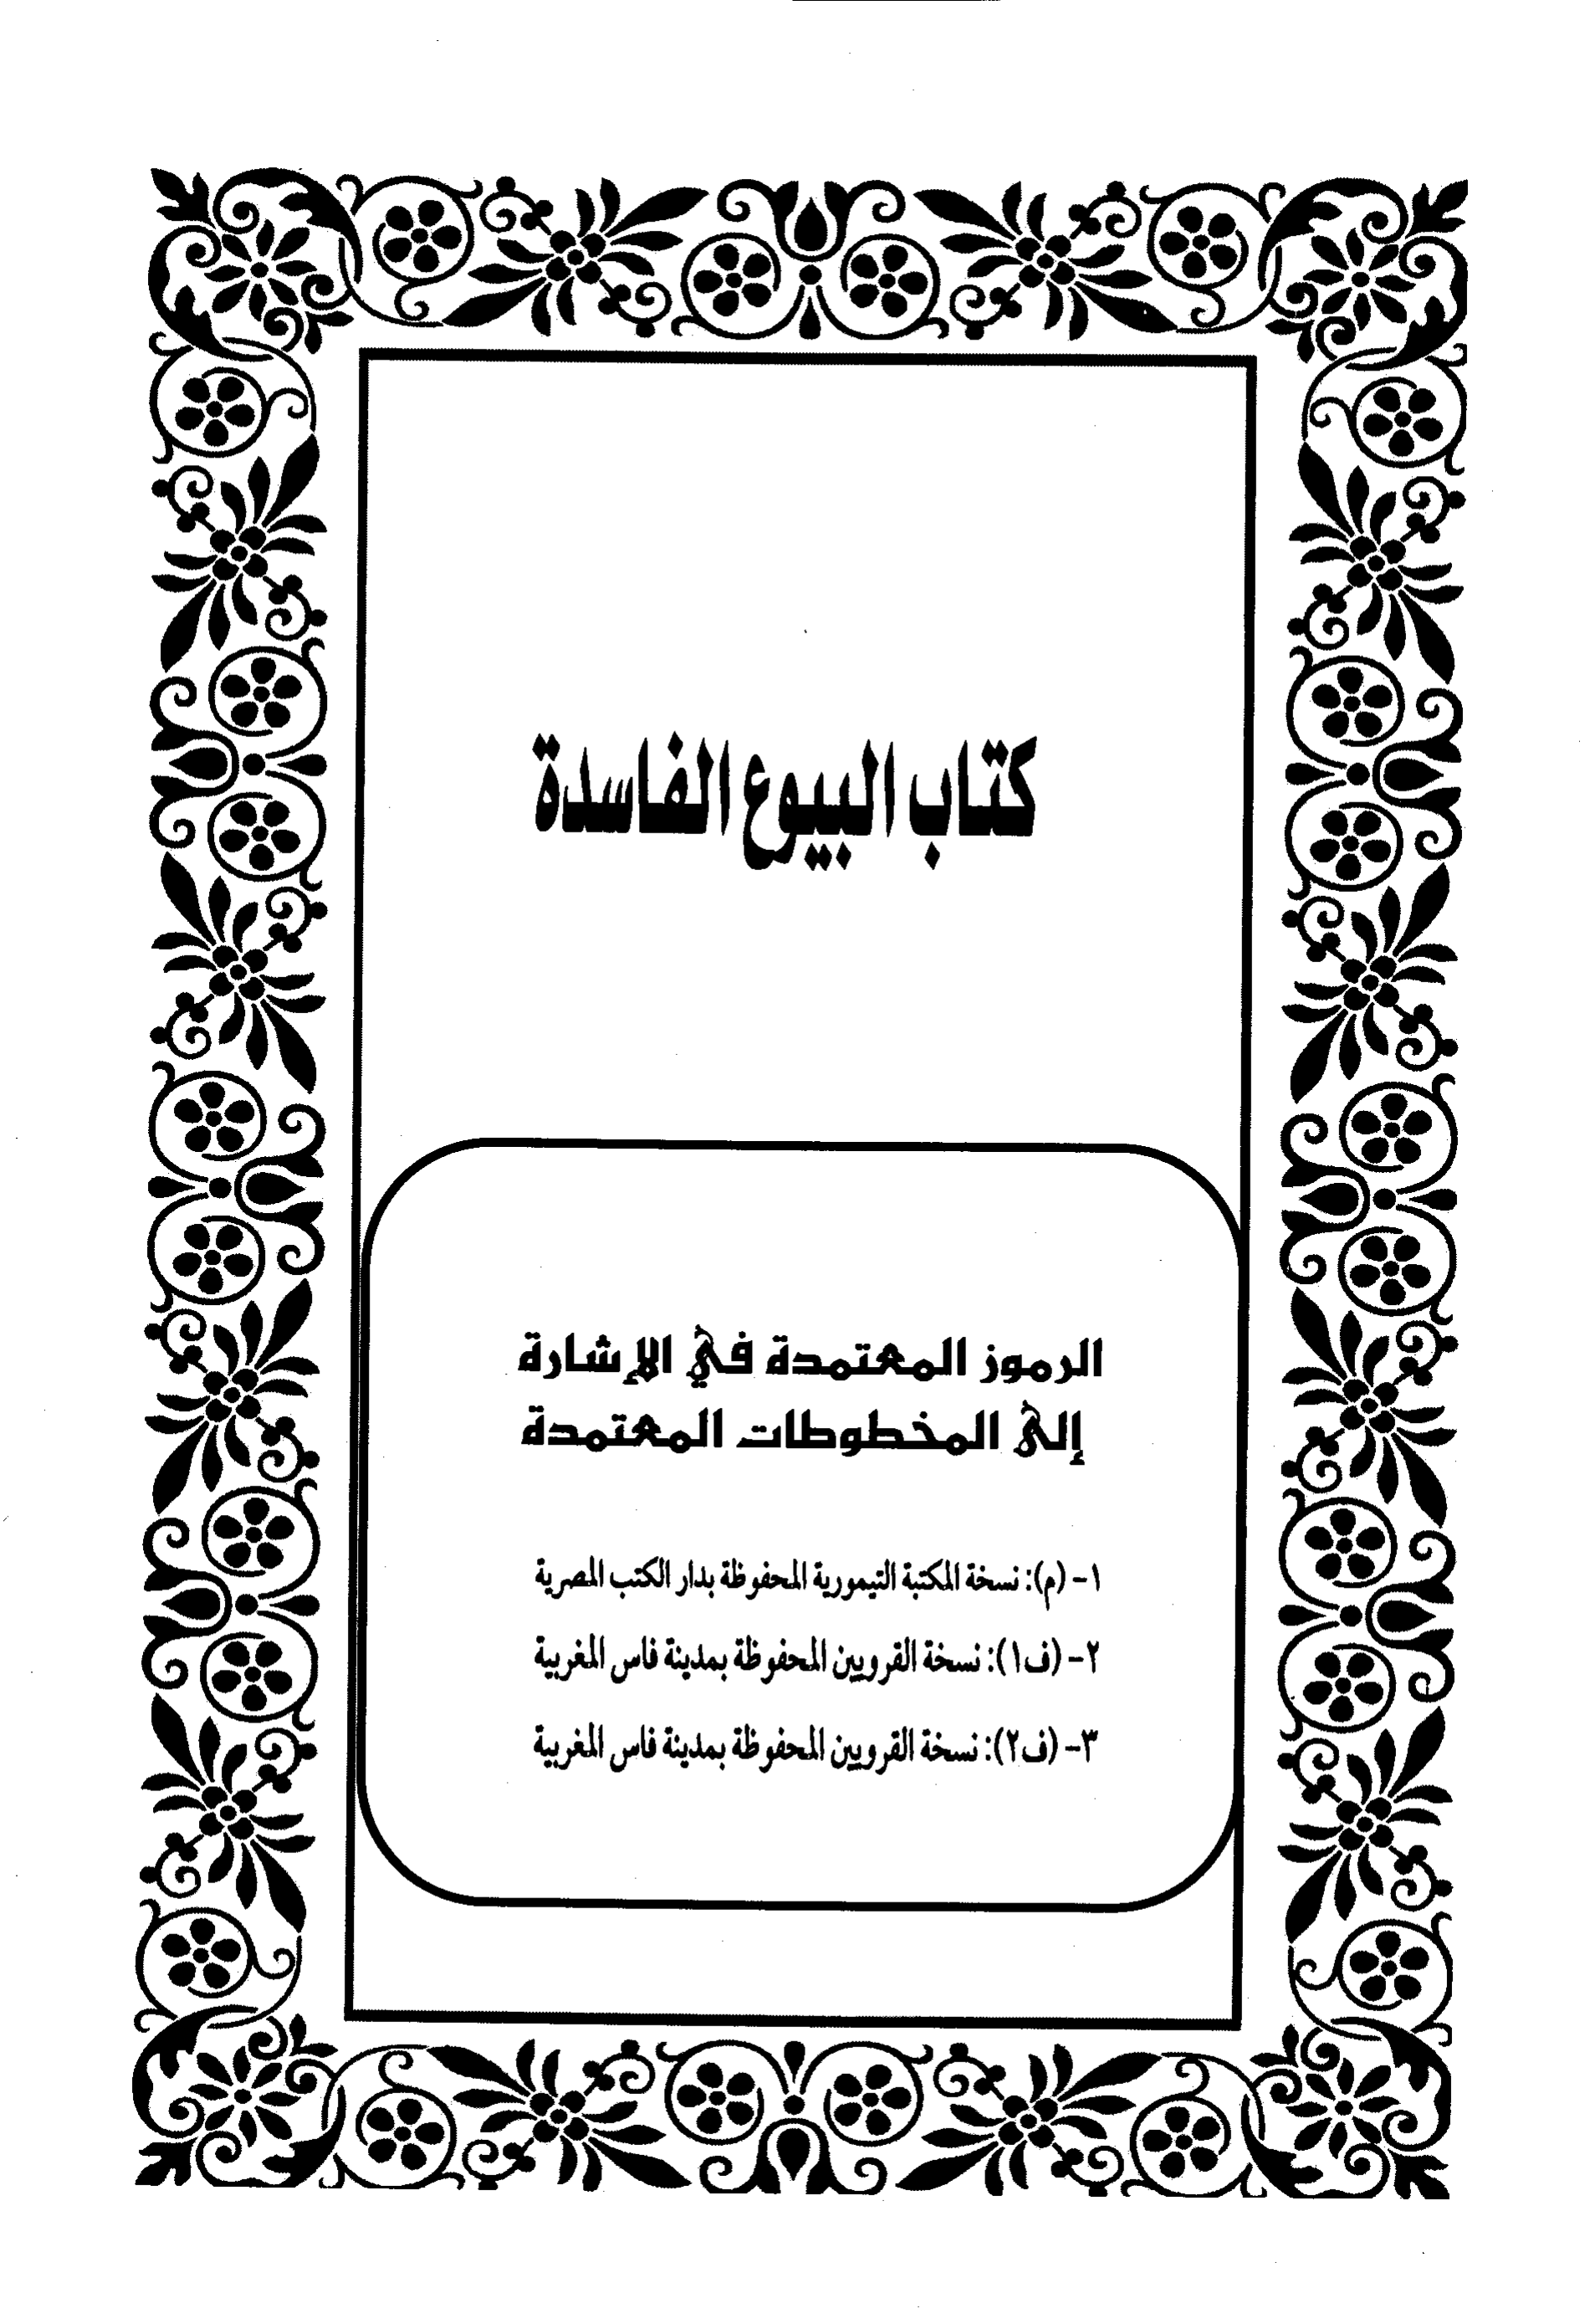 كتاب البيوع الفاسدة
الرموز المعتمدة في الإشارة
إلى المخطوطات المعتمدة
١- (م): نسخة المكتبة التيمورية المحفوظة بدار الكتب المصرية
٢- (ف١): نسخة القرويين المحفوظة بمدينة فاس المغربية
٣- (ف٢): نسخة القرويين المحفوظة بمدينة فاس المغربية